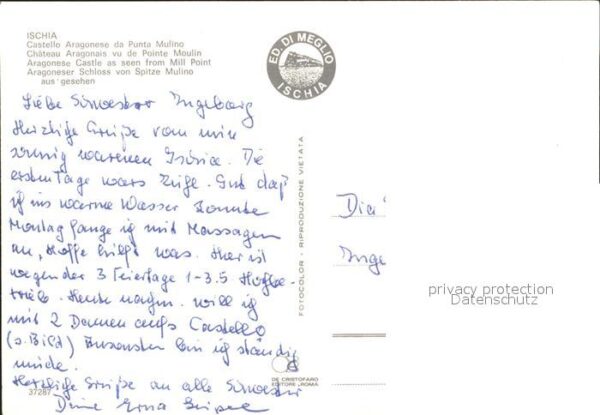 ISCHIA
Castello Aragonese da Punta Mulino
Château Aragonais vu de Pointe Moulin
Aragonese Castle as seen from Mill Point
Aragoneser Schloss von Spitze Mulino
aus gesehen
ED. DI MEGLIO
ISCHIA
Liebe Schwester Ingeborg
Herzliche Grüße vom nun
sonnig warmen Ischia. Die
ersten Tage wars kühl. Gut daß
ich ins warme Wasser konnte
Montag fange ich mit Massagen
an, hoffe hilft was. Hier ist
wegen der 3 Feiertage 1-3.5. Hochbe-
trieb. Heute nachm. will ich
mit 2 Damen aufs Castello
(s. Bild) Ansonsten bin ich ständig
müde.
Herzliche Grüße an alle Schwestern
Deine Erna
FOTOCOLOR - RIPRODUZIONE VIETATA
Inge
privacy protection
Datenschutz
37287
DE CRISTOFARO
EDITORE - ROMA